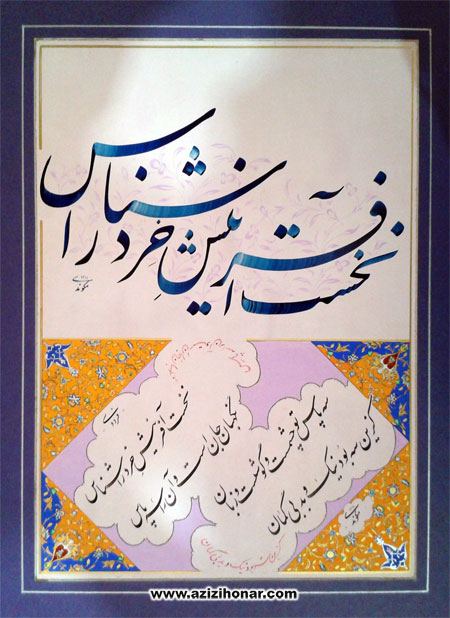 نخست آفرینش خرد را شناس
نخست آفرینش خرد را شناس
نگهبان جان است و آن را سه پاس
سه پاس تو چشمست و گوشست و زبان
کزین سه بود نیک و بد بی گمان
کزین سه بود نیک و بد بی گمان
www.azizihonar.com